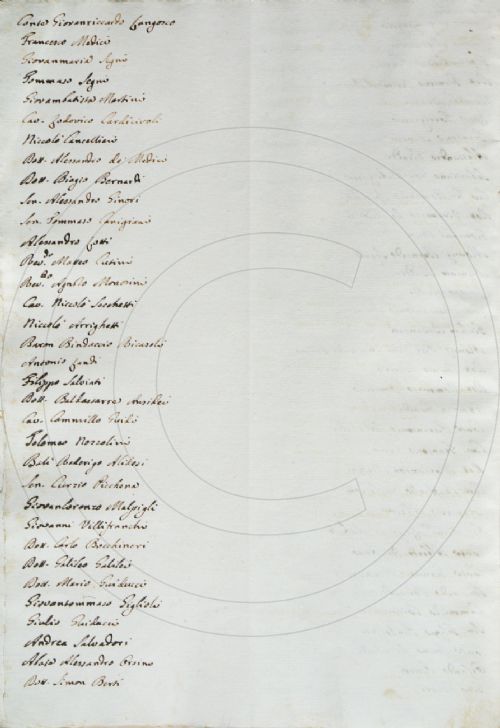 Conte Giovanriccardo Langosco
Francesco Medici
Giovanmaria Segni
Tommaso Segni
Giovambatista Martini
Cav. Lodovico Cardi
Niccolò Cancellieri
Dott. Alessandro de' Medici
Dott. Biagio Bernardi
Sen. Alessandro Ginori
Sen. Tommaso Cavigiano
Alessandro
Revdo. Matteo Cutini
Revdo. Agnolo
Cav. Niccolò Sacchetti
Niccolò Arrighetti
Baron Bindaccio Ricasoli
Antonio Landi
Filippo Salviati
Dott. Baldassarre Ansidei
Cav. Cammillo Guidi
Tolomeo Nozzolini
Balì Roderigo Alidosi
Sen. Curzio Picchena
Giovanlorenzo Malpigli
Giovanni Villifranchi
Dott. Carlo Bocchineri
Dott. Galileo Galilei
Dott. Mario Guiducci
Giovantommaso Giglioli
Giulio Guiducci
Andrea Salvadori
Abate Alessandro Orsino
Dott. Simon Berti